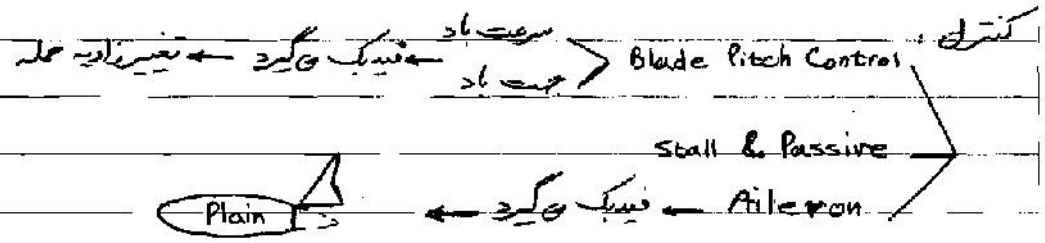 کنترل:
Blade Pitch Control
سرعت باد
جهت باد
← فیدبک می‌گیرد ← تغییر زاویه حمله
Stall & Passive
Aileron ← فیدبک می‌گیرد ←
Plain